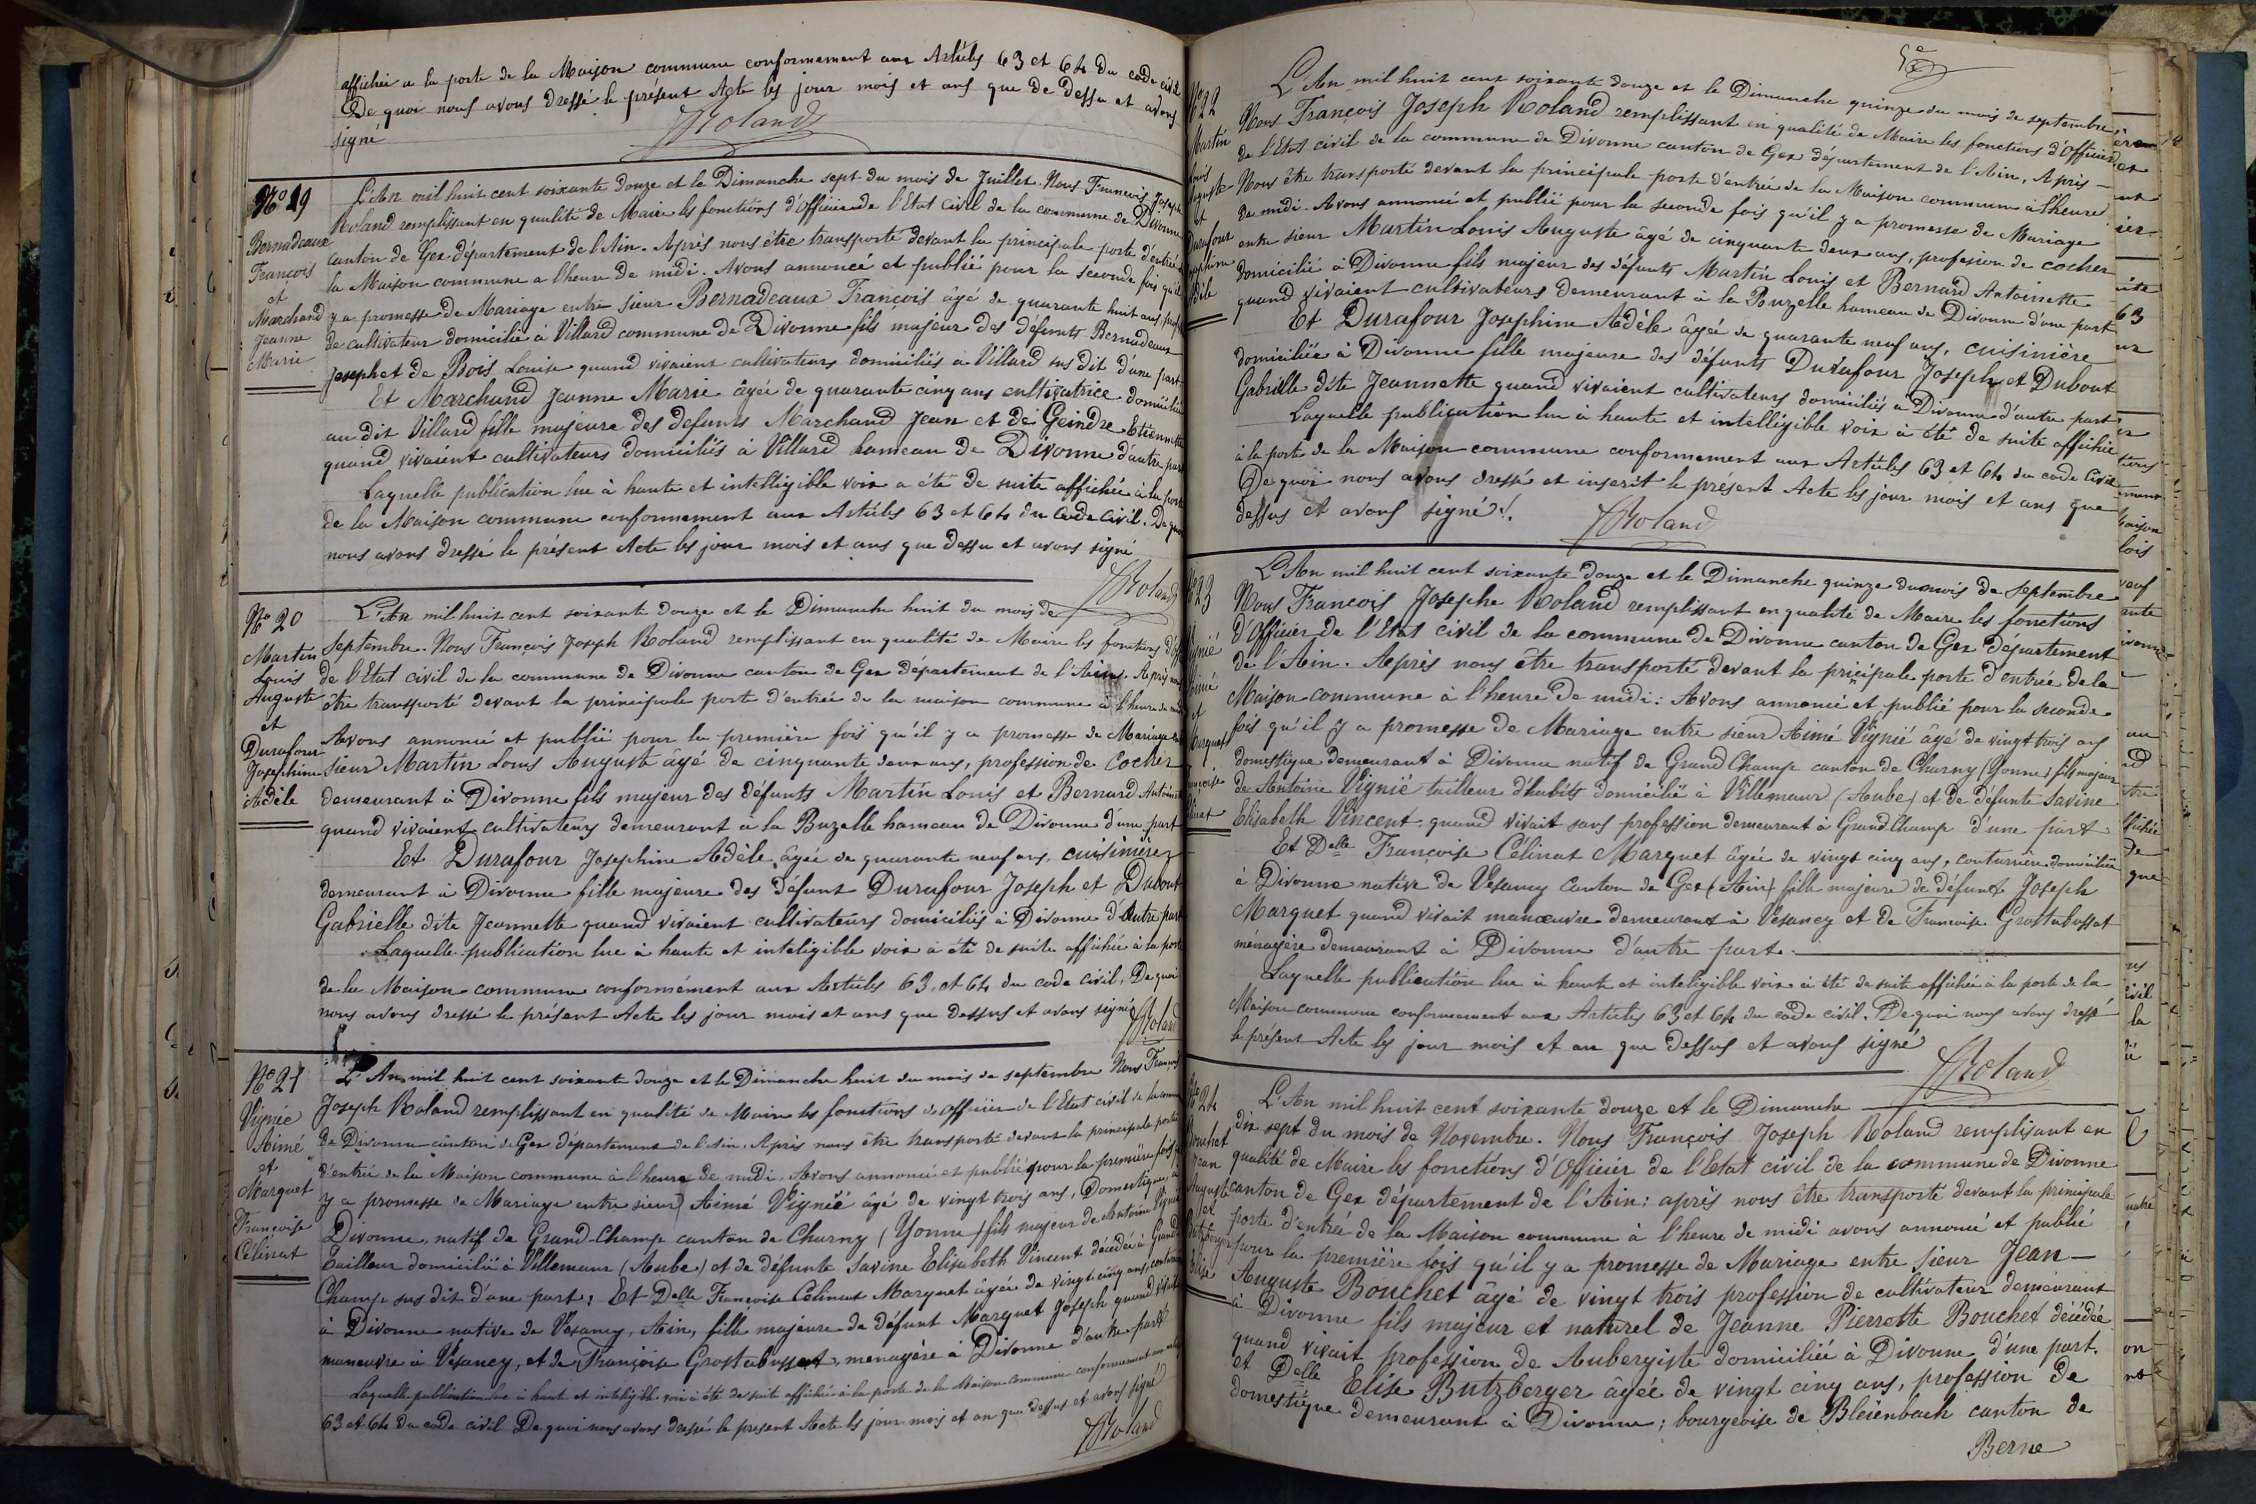 affichée a la porte de la Maison commune conformement aux Articles 63 et 64 du code civil
De quoi nous avons dressé le présent Acte les jour mois et ans que de dessu et avons
signé
FRoland
No 19
Bernadeaux
François
et
Marchand
Jeanne
Marie
L'An mil huit cent soixante douze et le Dimanche sept du mois de Juillet. Nous Francois Joseph
Roland remplissant en qualité de Maire les fonctions d'officier de l'Etat civil de la commune de Divonne
canton de Gex département de l'Ain. Après nous être transporté devant la principale porte d'entrée
la Maison commune a l'heure de midi. Avons annoncé et publié pour la seconde fois qu'il
y a promesse de Mariage entre sieur Bernadeaux François âgé de quarante huit ans,
de cultivateur domicilié à Villard commune de Divonne fils majeur des défunts Bernadeaux
Joseph et de Bois Louise quand vivaient cultivateurs domiciliés à Villard sus dit d'une part
Et Marchand Jeanne Marie âgée de quarante cinq ans cultivatrice domiciliée
au dit Villard fille majeure des defunts Marchand Jean et de Geindre Etiennette
quand vivaient cultivateurs domiciliés à Villard hameau de Divonne d'autre part
Laquelle publication lue à haute et intelligible voix a été de suite affichée à la porte
de la Maison commune conformement aux Articles 63 et 64 du Code Civil. De quoi
nous avons dressé le présent Acte les jour mois et ans que dessu et avons signé
FRoland
No 20
Martin
Louis
Auguste
et
Durafour
Josephine
Adèle
L'An mil huit cent soixante douze et le Dimanche huit du mois de
Septembre. Nous François Joseph Roland remplissant en qualité de Maire les fonctions
de l'Etat civil de la commune de Divonne canton de Gex département de l'Ain. Après nous
être transporté devant la principale porte d'entrée de la maison commune à l'heure de midi
Avons annoncé et publié pour la première fois qu'il y a promesse de Mariage
sieur Martin Louis Auguste âgé de cinquante deux ans, profession de Cocher
demeurant à Divonne fils majeur des défunts Martin Louis et Bernard Antoinette
quand vivaient cultivateurs demeurant à la Buzelle hameau de Divonne d'une part
Et Durafour Josephine Adèle âgée de quarante neuf ans, cuisinière
demeurant à Divonne fille majeure des défunt Durafour Joseph et Dubout
Gabrielle dite Jeannette quand vivaient cultivateurs domiciliés à Divonne d'Autre part
Laquelle publication lue à haute et inteligible voix à été de suite affichée à la porte
de la Maison commune conformément aux Articles 63 et 64 du code civil, De quoi
nous avons dressé le présent Acte les jour mois et ans que dessus et avons signé
FRoland
No 21
Vignié
Aimé
et
Marquet
Françoise
Célinat
L'An mil huit cent soixante douze et le Dimanche huit du mois de septembre Nous François
Joseph Roland remplissant en qualité de Maire les fonctions d'officier de l'Etat civil de la commune
de Divonne canton de Gex département de l'Ain. Après nous être transporté devant la principale porte
d'entrée de la Maison commune à l'heure de midi. Avons annoncé et publié pour la première fois
y a promesse de Mariage entre sieur Aimé Vignié âgé de vingt trois ans, Domestique à
Divonne natif de Grand-Champ canton de Charny (Yonne) fils majeur de Antoine Vignié
Tailleur domicilié à Villemaur (Aube) et de défunte Savine Elisabeth Vincent décédée à Grand
Champ sus dit d'une part; Et Delle Françoise Célinat Marquet âgée de vingt cinq ans, couturière
à Divonne native de Vesancy, Ain, fille majeure de défunt Marquet Joseph quand vivait
manœuvre à Vesancy, et de Françoise Grostabussat, menagère à Divonne d'autre part
Laquelle publication lue à haut et inteligible voix à été de suite affichée à la porte de la Maison commune conformement aux
63 et 64 du code civil De quoi nous avons dressé le present Acte les jour mois et an que dessus et avons signé
FRoland
5e
No 22
Martin
Louis
Auguste
et
Durafour
Josephine
Adèle
L'An mil huit cent soixante douze et le Dimanche quinze du mois de septembre
Nous François Joseph Roland remplissant en qualité de Maire les fonctions d'Officier
de l'Etat civil de la commune de Divonne canton de Gex département de l'Ain, Après
Nous être transporté devant la principale porte d'entrée de la Maison commune à l'heure
de midi. Avons annoncé et publié pour la seconde fois qu'il y a promesse de Mariage
entre sieur Martin Louis Auguste âgé de cinquante deux ans, profession de cocher
domicilié à Divonne fils majeur des défunts Martin Louis et Bernard Antoinette
quand vivaient cultivateurs demeurant à la Buzelle hameau de Divonne d'une part
Et Durafour Josephine Adèle âgée de quarante neuf ans, cuisinière
domiciliée à Divonne fille majeure des défunts Durafour Joseph et Dubout
Gabrielle dite Jeannette quand vivaient cultivateurs domiciliés à Divonne d'autre part
Laquelle publication lue à haute et intelligible voix à été de suite affichée
à la porte de la Maison commune conformement aux Articles 63 et 64 du code Civil
De quoi nous avons dressé et inscrit le présent Acte les jour mois et ans que
dessus et avons signé.
FRoland
No 23
Vignié
Aimé
et
Marquet
Françoise
Célinat
L'An mil huit cent soixante douze et le Dimanche quinze du mois de Septembre
Nous Francois Josephe Roland remplissant en qualité de Maire les fonctions
d'Officier de l'Etat civil de la commune de Divonne canton de Gex département
de l'Ain. Après nous être transporté devant la principale porte d'entrée de la
Maison commune à l'heure de midi: Avons annoncé et publié pour la seconde
fois qu'il y a promesse de Mariage entre sieur Aimé Vignié âgé de vingt trois ans
domestique demeurant à Divonne natif de Grand Champ canton de Charny (Yonne) fils majeur
de Antoine Vignié tailleur d'habits domicilié à Villemaur (Aube) et de défunte Savine
Elisabeth Vincent quand vivait sans profession demeurant à Grand Champ d'une part
Et Delle Françoise Célinat Marquet âgée de vingt cinq ans, couturière domiciliée
à Divonne native de Vesancy Canton de Gex (Ain) fille majeure de défunt Joseph
Marquet quand vivait manœuvre demeurant à Vesancy et de Francoise Grostabussat
ménagère demeurant à Divonne d'autre part.
Laquelle publication lue à haute et inteligible voix à été de suite affichée à la porte de la
Maison commune conformement aux Articles 63 et 64 du code civil. De quoi nous avons dressé
le présent Acte les jour mois et an que dessus et avons signé
FRoland
No 24
Bouchet
Jean
Auguste
et
Butzberger
Elise
L'An mil huit cent soixante douze et le Dimanche
dix sept du mois de Novembre. Nous François Joseph Roland remplisant en
qualité de Maire les fonctions d'Officier de l'Etat civil de la commune de Divonne
canton de Gex département de l'Ain: après nous être transporté devant la principale
porte d'entrée de la Maison commune à l'heure de midi avons annoncé et publié
pour la première fois qu'il y a promesse de Mariage entre sieur Jean
Auguste Bouchet âgé de vingt trois profession de cultivateur demeurant
à Divonne fils majeur et naturel de Jeanne Pierrette Bouchet décédée
quand vivait profession de Aubergiste domiciliée à Divonne d'une part.
et Delle Elise Butzberger âgée de vingt cinq ans, profession de
domestique demeurant à Divonne; bourgeoise de Bleienbach canton de
Berne